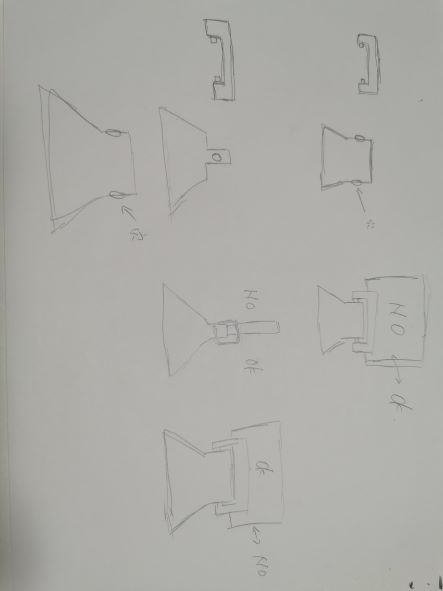 NO ok.
穴
NO OK
ok NO
穴